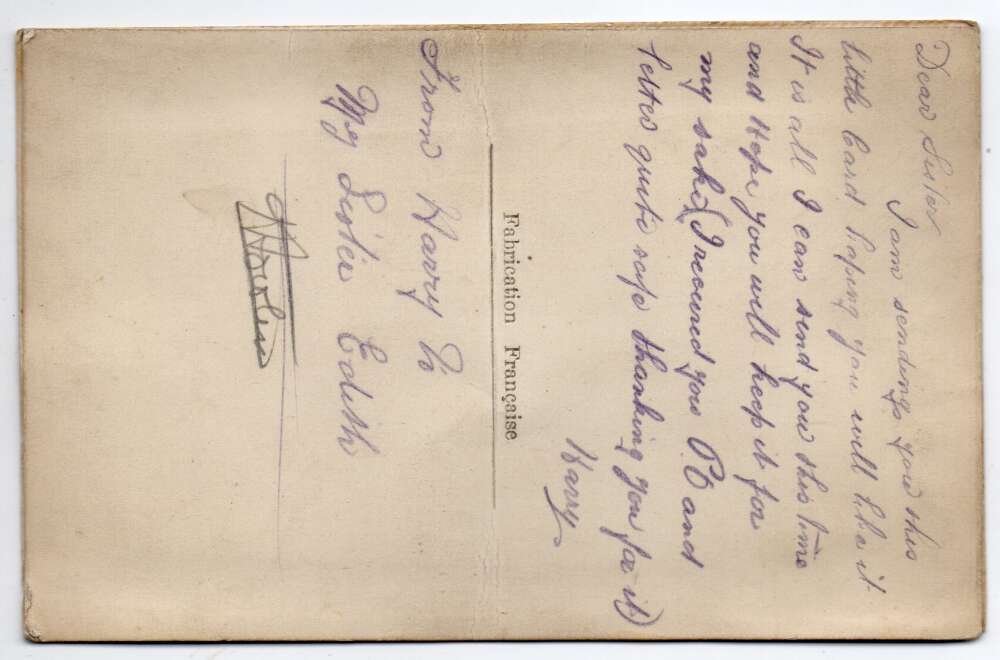 Dear Sister
I am sending you this
little Card hoping you will like it
It is all I can send you this time
and Hope you will keep it for
my sake (I received your P.O and
letter quite safe thanking you for it)
Harry
Fabrication Française
From Harry To
My Sister Edith